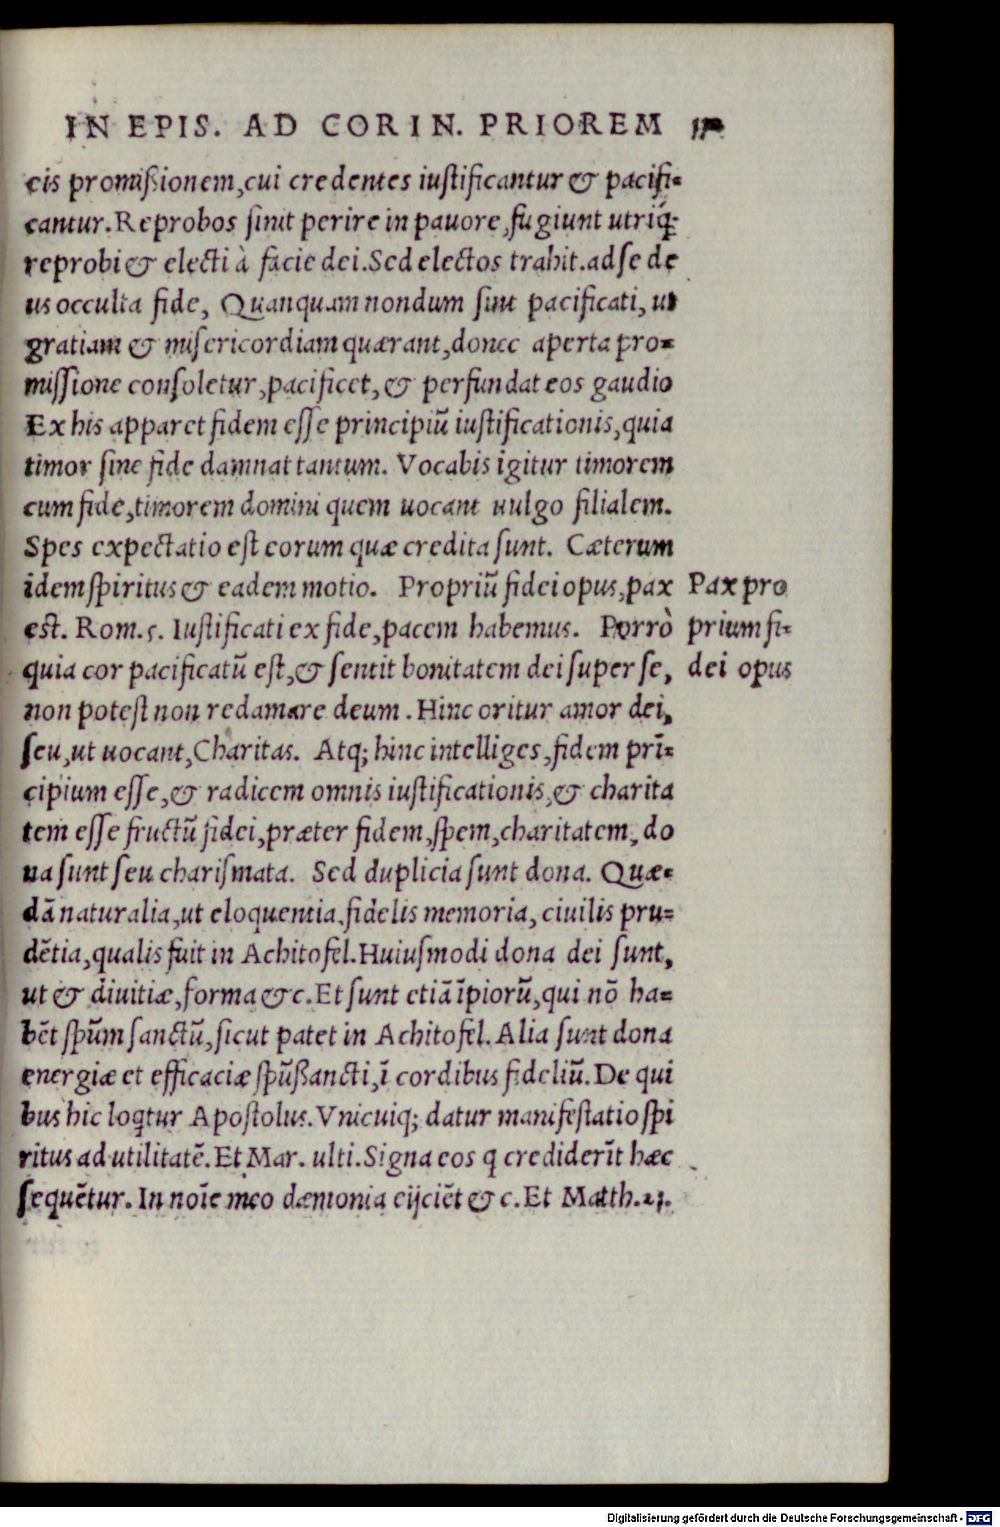 IN EPIS. AD CORIN. PRIOREM
cis promißionem, cui credentes iustificantur & pacifi-
cantur. Reprobos sinit perire in pauore, fugiunt utriq;
reprobi & electi à facie dei. Sed electos trahit. ad se de
us occulta fide, Quanquam nondum sint pacificati, ut
gratiam & misericordiam quærant, donec aperta pro-
missione consoletur, pacificet, & perfundat eos gaudio
Ex his apparet fidem esse principiū iustificationis, quia
timor sine fide damnat tantum. Vocabis igitur timorem
cum fide, timorem domini quem uocant uulgo filialem.
Spes expectatio est eorum quæ credita sunt. Cæterum
idem spiritus & eadem motio. Propriū fidei opus, pax
est. Rom. 5. Iustificati ex fide, pacem habemus. Porrò
quia cor pacificatū est, & sentit bonitatem dei super se,
non potest non redamare deum. Hinc oritur amor dei,
seu, ut uocant, Charitas. Atq; hinc intelliges, fidem prī-
cipium esse, & radicem omnis iustificationis, & charita
tem esse fructū fidei, præter fidem, spem, charitatem, do
na sunt seu charismata. Sed duplicia sunt dona. Quæ-
dā naturalia, ut eloquentia, fidelis memoria, ciuilis pru-
dētia, qualis fuit in Achitofel. Huiusmodi dona dei sunt,
ut & diuitiæ, forma &c. Et sunt etiā īpiorū, qui nō ha-
bēt spūm sanctū, sicut patet in Achitofel. Alia sunt dona
energiæ et efficaciæ spūßancti, ī cordibus fideliū. De qui
bus hic loq̄tur Apostolus. Vnicuiq; datur manifestatio spi
ritus ad utilitatē. Et Mar. ulti. Signa eos q crediderīt hæc
sequētur. In noīe meo dæmonia eijciēt &c. Et Matth. 21.
Pax pro
prium fi-
dei opus
Digitalisierung gefördert durch die Deutsche Forschungsgemeinschaft - DFG